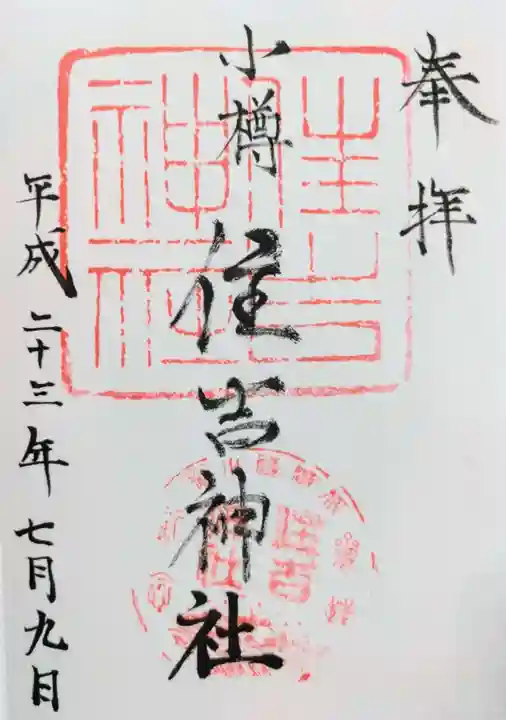 奉拝
小樽 住吉神社
平成二十三年七月九日
住吉神社